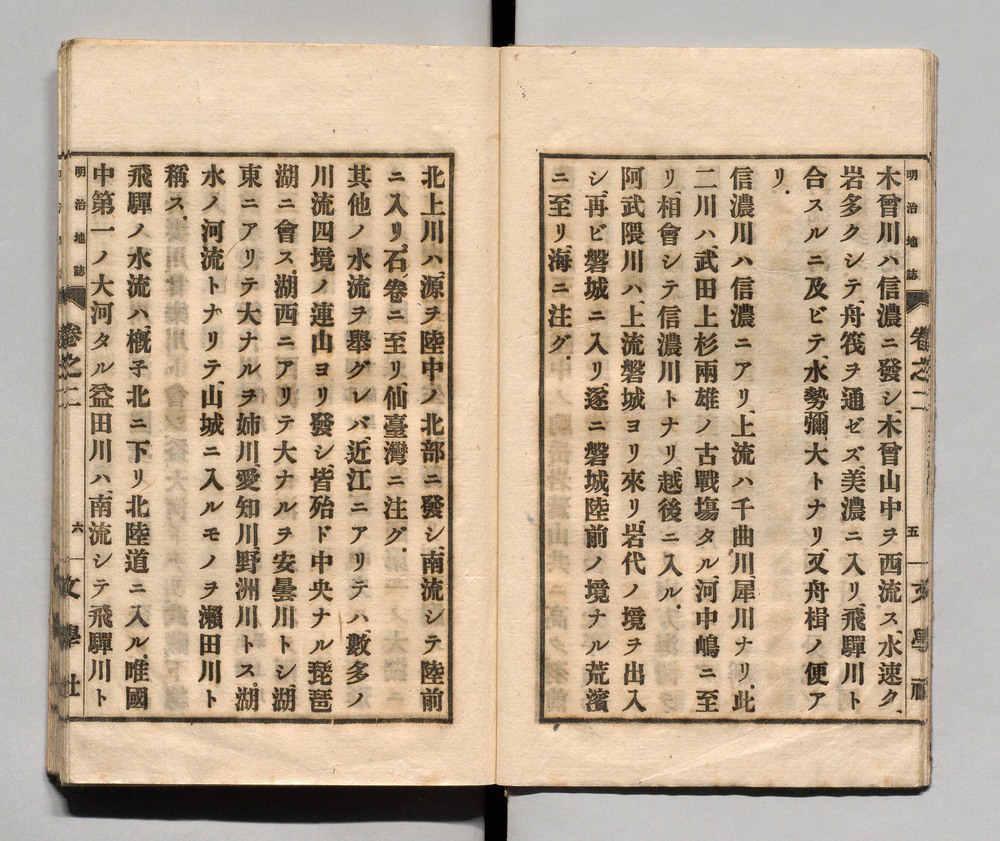 明治地誌 卷之二 五 文學社
木曾川ハ、信濃ニ發シ、木曾山中ヲ西流ス、水速ク、
岩多クシテ、舟筏ヲ通ゼズ、美濃ニ入リ、飛驒川ト
合スルニ及ビテ、水勢彌、大トナリ、又舟楫ノ便ア
リ。
信濃川ハ信濃ニアリ、上流ハ千曲川、犀川ナリ、此
二川ハ、武田上杉兩雄ノ古戰塲タル、河中嶋ニ至
リ、相會シテ信濃川トナリ、越後ニ入ル。
阿武隈川ハ、上流磐城ヨリ來リ、岩代ノ境ヲ出入
シ、再ビ磐城ニ入リ、逐ニ磐城、陸前ノ境ナル荒濱
ニ至リ、海ニ注グ。
北上川ハ、源ヲ陸中ノ北部ニ發シ、南流シテ陸前
ニ入リ、石卷ニ至リ、仙臺灣ニ注グ。
其他ノ水流ヲ擧グレバ、近江ニアリテハ、數多ノ
川流、四境ノ連山ヨリ發シ、皆殆ド中央ナル琵琶
湖ニ會ス。湖西ニアリテ大ナルヲ安曇川トシ、湖
東ニアリテ大ナルヲ姉川、愛知川、野洲川トス。湖
水ノ河流トナリテ、山城ニ入ルモノヲ瀨田川ト
稱ス。
飛驒ノ水流ハ、槪子北ニ下リ、北陸道ニ入ル。唯國
中第一ノ大河タル、益田川ハ、南流シテ飛驒川ト
明治地誌 卷之二 六 文學社